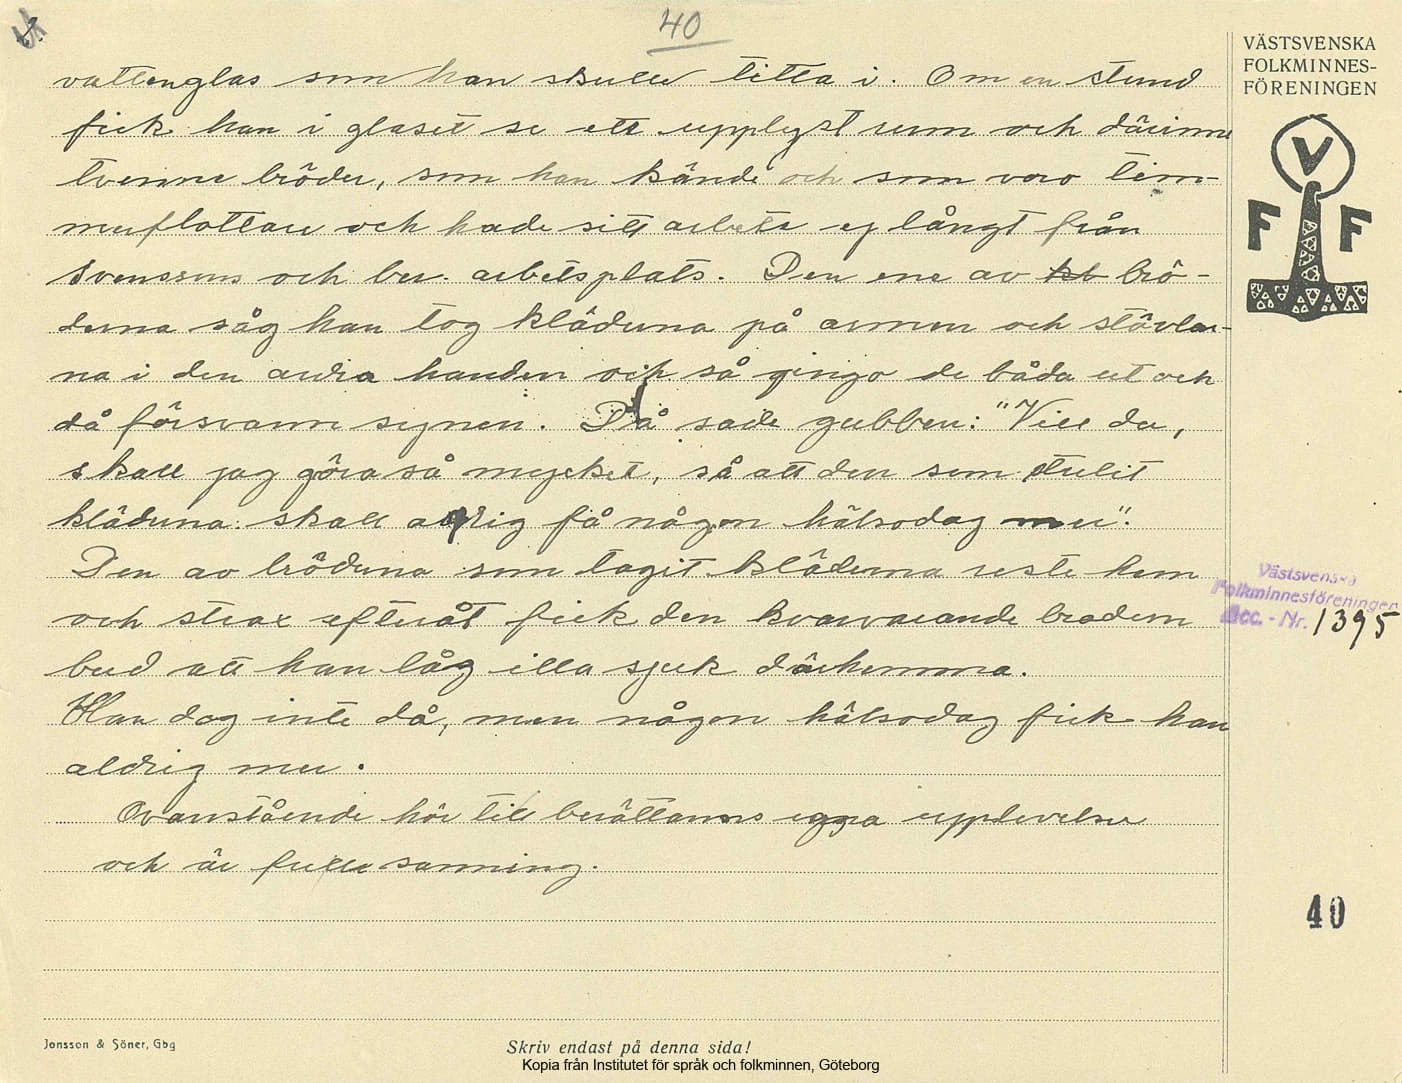 40
vattenglas som han skulle titta i. Om en stund
fick han i glaset se ett upplyst rum och därinne
tvenne bröder, som han kände och som voro tim-
merflottare och hade sitt arbete ej långt från
Svenssons och ber. arbetsplats. Den ene av brö-
derna såg han tog kläderna på armen och stövlar-
na i den andra handen och så gingo de båda ut och
då försvann synen. Då sade gubben: "Vill du,
skall jag göra så mycket, så att den som stulit
kläderna skall aldrig få någon hälsodag mer".
Den av bröderna som tagit kläderna reste hem
och strax efteråt fick den kvarvarande brodern
bud att han låg illa sjuk därhemma.
Han dog inte då, men någon hälsodag fick han
aldrig mer.
Ovanstående hör till berättarens egna upplevelser
och är full sanning.
VÄSTSVENSKA
FOLKMINNES-
FÖRENINGEN
V
F F
Västsvenska
Folkminnesföreningen
Acc. - Nr. 1395
40
Jonsson & Söner, Gbg
Skriv endast på denna sida!
Kopia från Institutet för språk och folkminnen, Göteborg